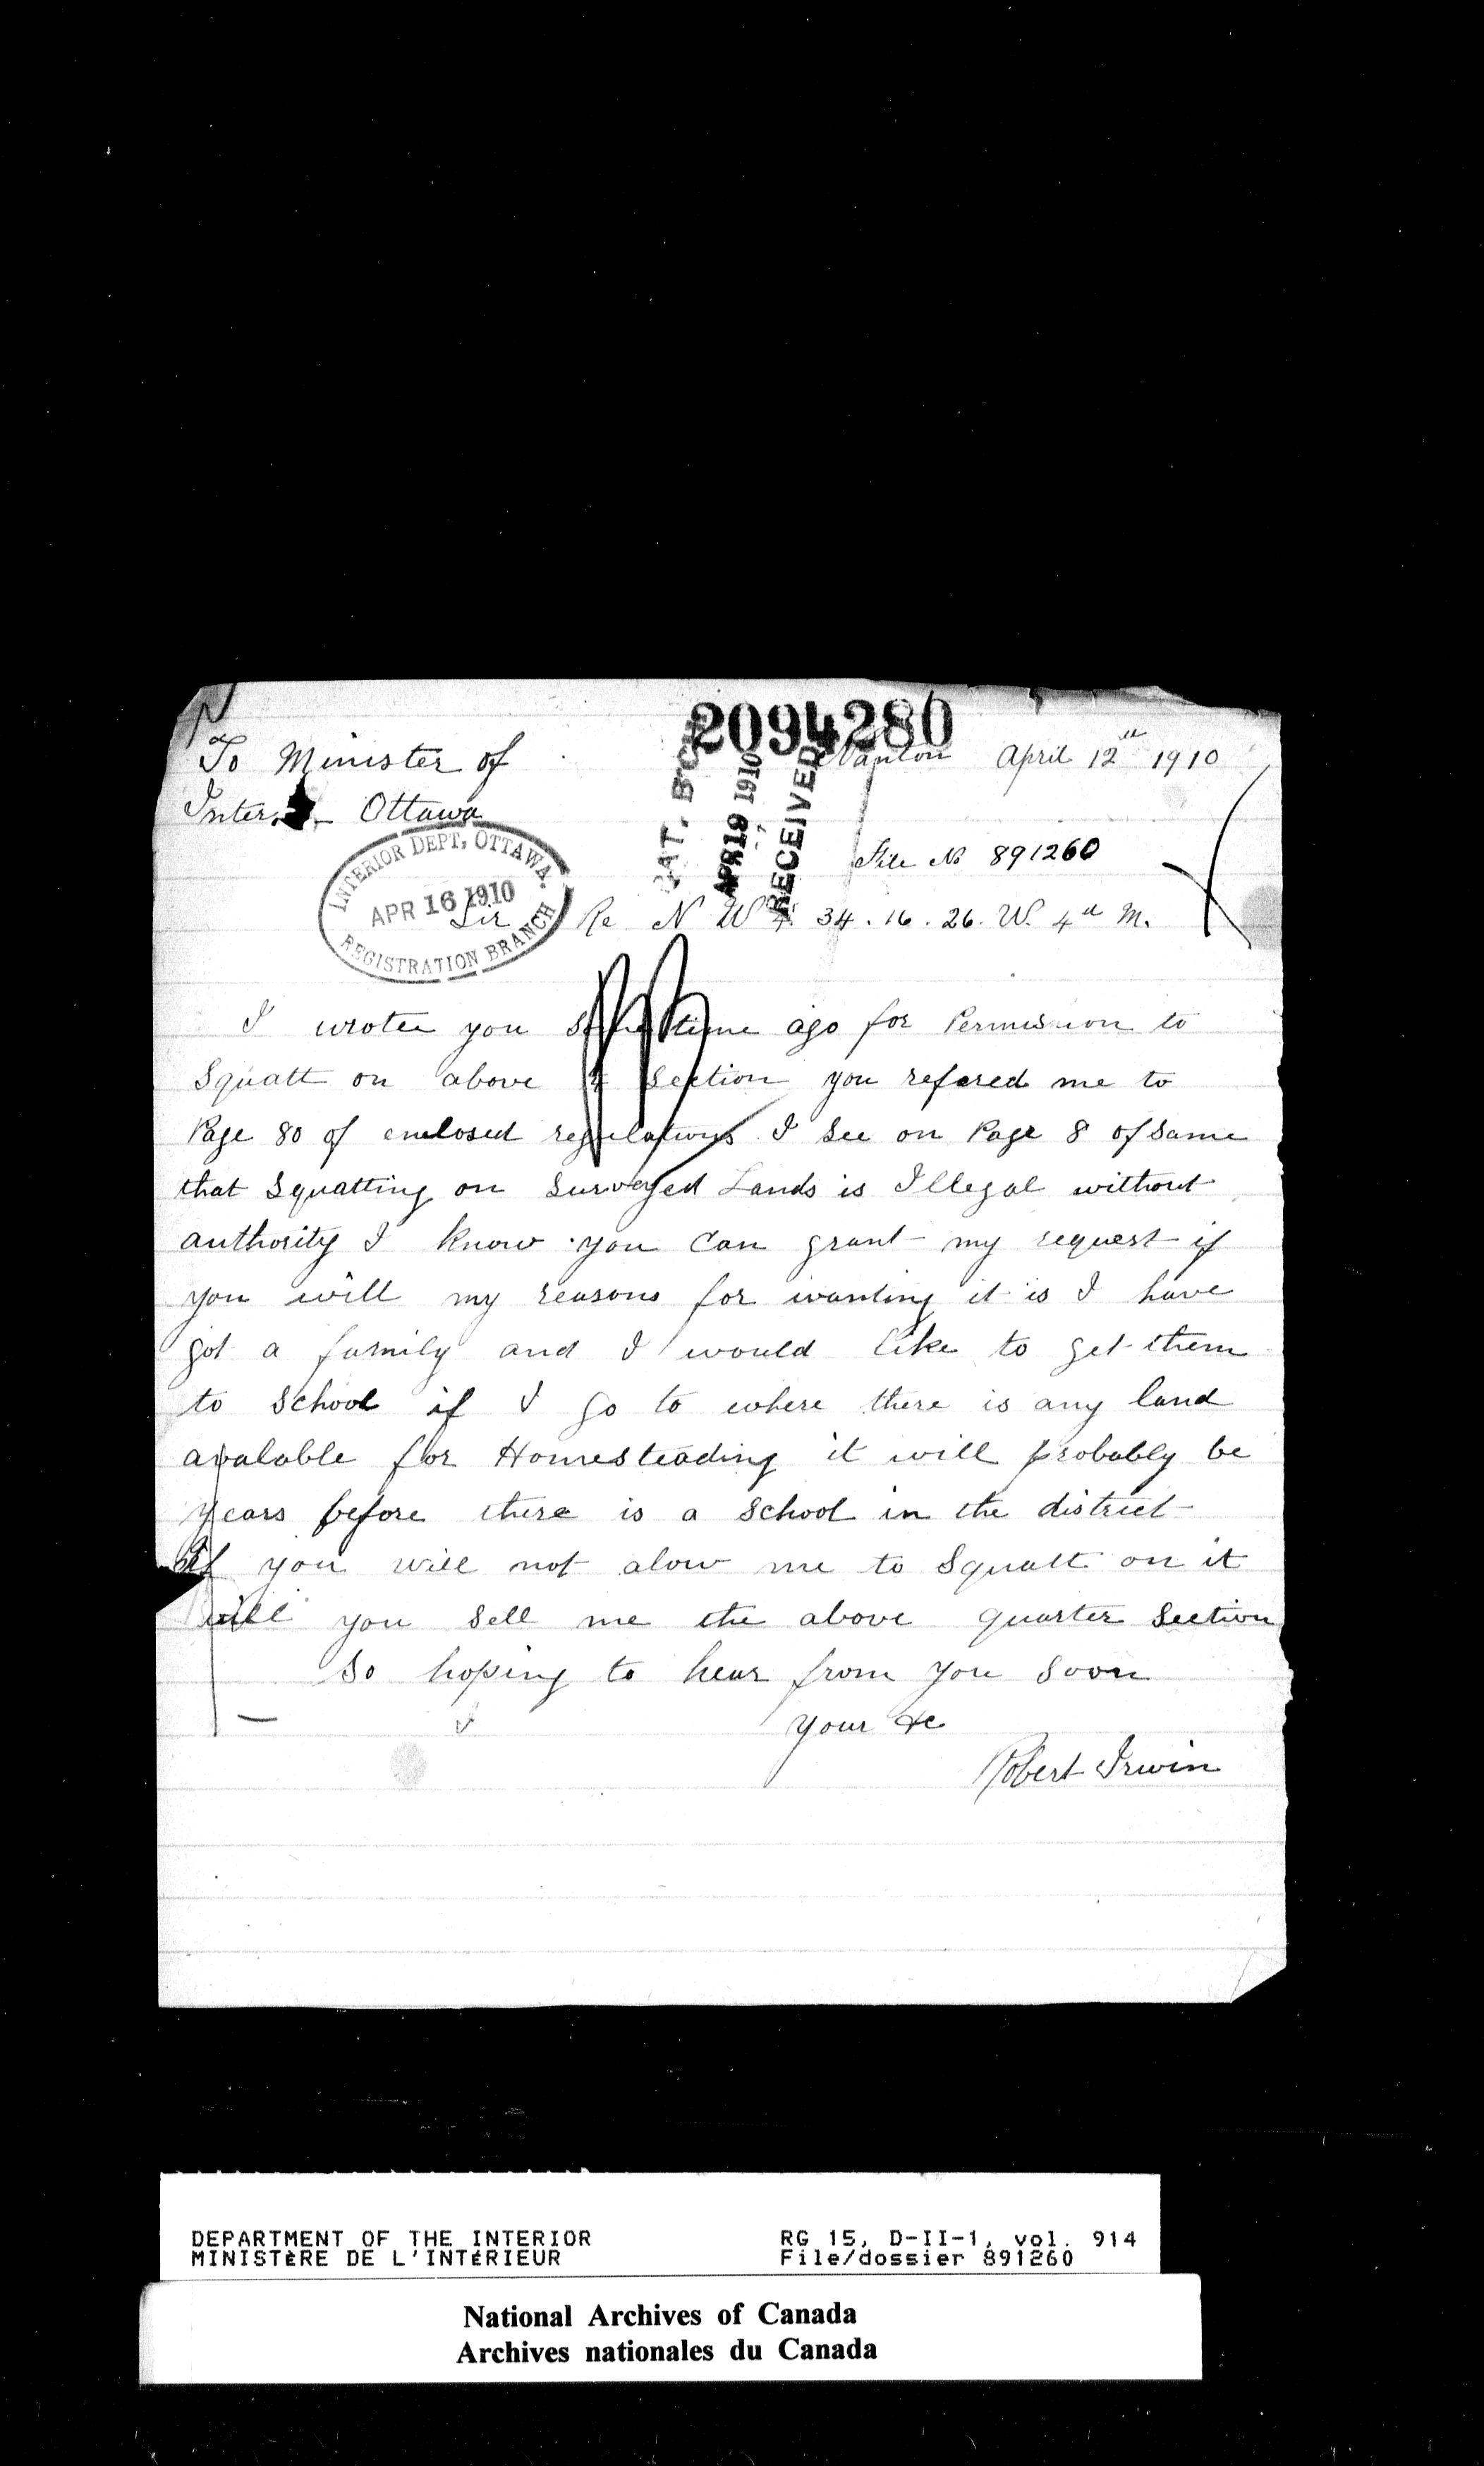 2094280
To Minister of
Nanton April 12th 1910
Ottawa
INTERIOR DEPT, OTTAWA.
APR 16 1910
REGISTRATION BRANCH
APR 19 1910
RECEIVED
File No 891260
Sir Re N W 1/4 34. 16. 26. W. 4th M.
I wrote you some time ago for Permission to
Squatt on above 1/4 Section you refered me to
Page 80 of enclosed regulations I See on Page 8 of Same
that Squatting on Surveyed Lands is Illegal without
authority I know you Can grant my request if
you will my reasons for wanting it is I have
got a family and I would like to get them
to School if I go to where there is any land
avalable for Homesteading it will probably be
years before there is a School in the district
If you will not alow me to Squatt on it
will you Sell me the above quarter Section
So hoping to hear from you Soon
Your &c
Robert Irwin
DEPARTMENT OF THE INTERIOR
MINISTÈRE DE L'INTÉRIEUR
RG 15, D-II-1, vol. 914
File/dossier 891260
National Archives of Canada
Archives nationales du Canada